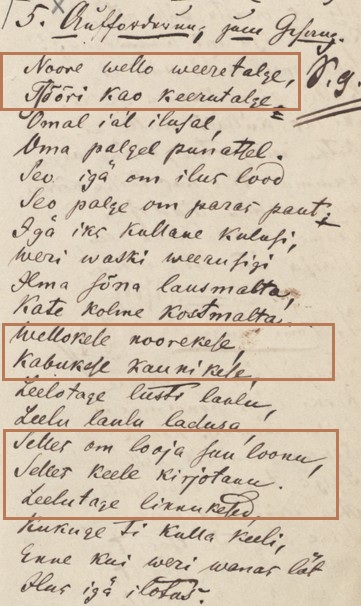 5. Aufforderung zum Gesang.
Noore wello weeretalge, S. g.
Pööri kao keerutalge
Omal ial ilusal,
Oma palgel punatsel.
Seo igä om ilus lood
Seo palge om paras pant;
Igä iks kullane kulusi,
weri waski weerusigi
Ilma sõna lausmalta,
Kate kolme kostmalta.
Wellokese noorekese,
Kabukese kaunikese,
Leelotage lusti laulu,
Leelu laulu ladusa
Selles om looja suu loonu,
Selles keele kirjotanu.
Leelutage linnukesed,
Kukuge ti kulla keeli,
Enne kui weri wanas lät
Ilus igä